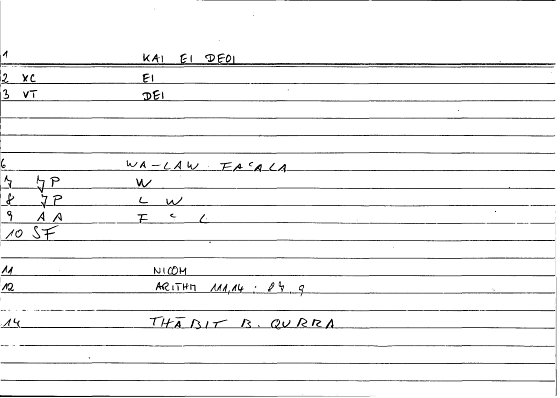 1 KAI EI DEOI
2 XC EI
3 VT DEI
6 WA-LAW FAʿALA
7 7P W
8 7P L W
9 AA F ʿ L
10 SF
11 NICOM
12 ARITHM 111,14 : 87, 9
14 THĀBIT B. QURRA